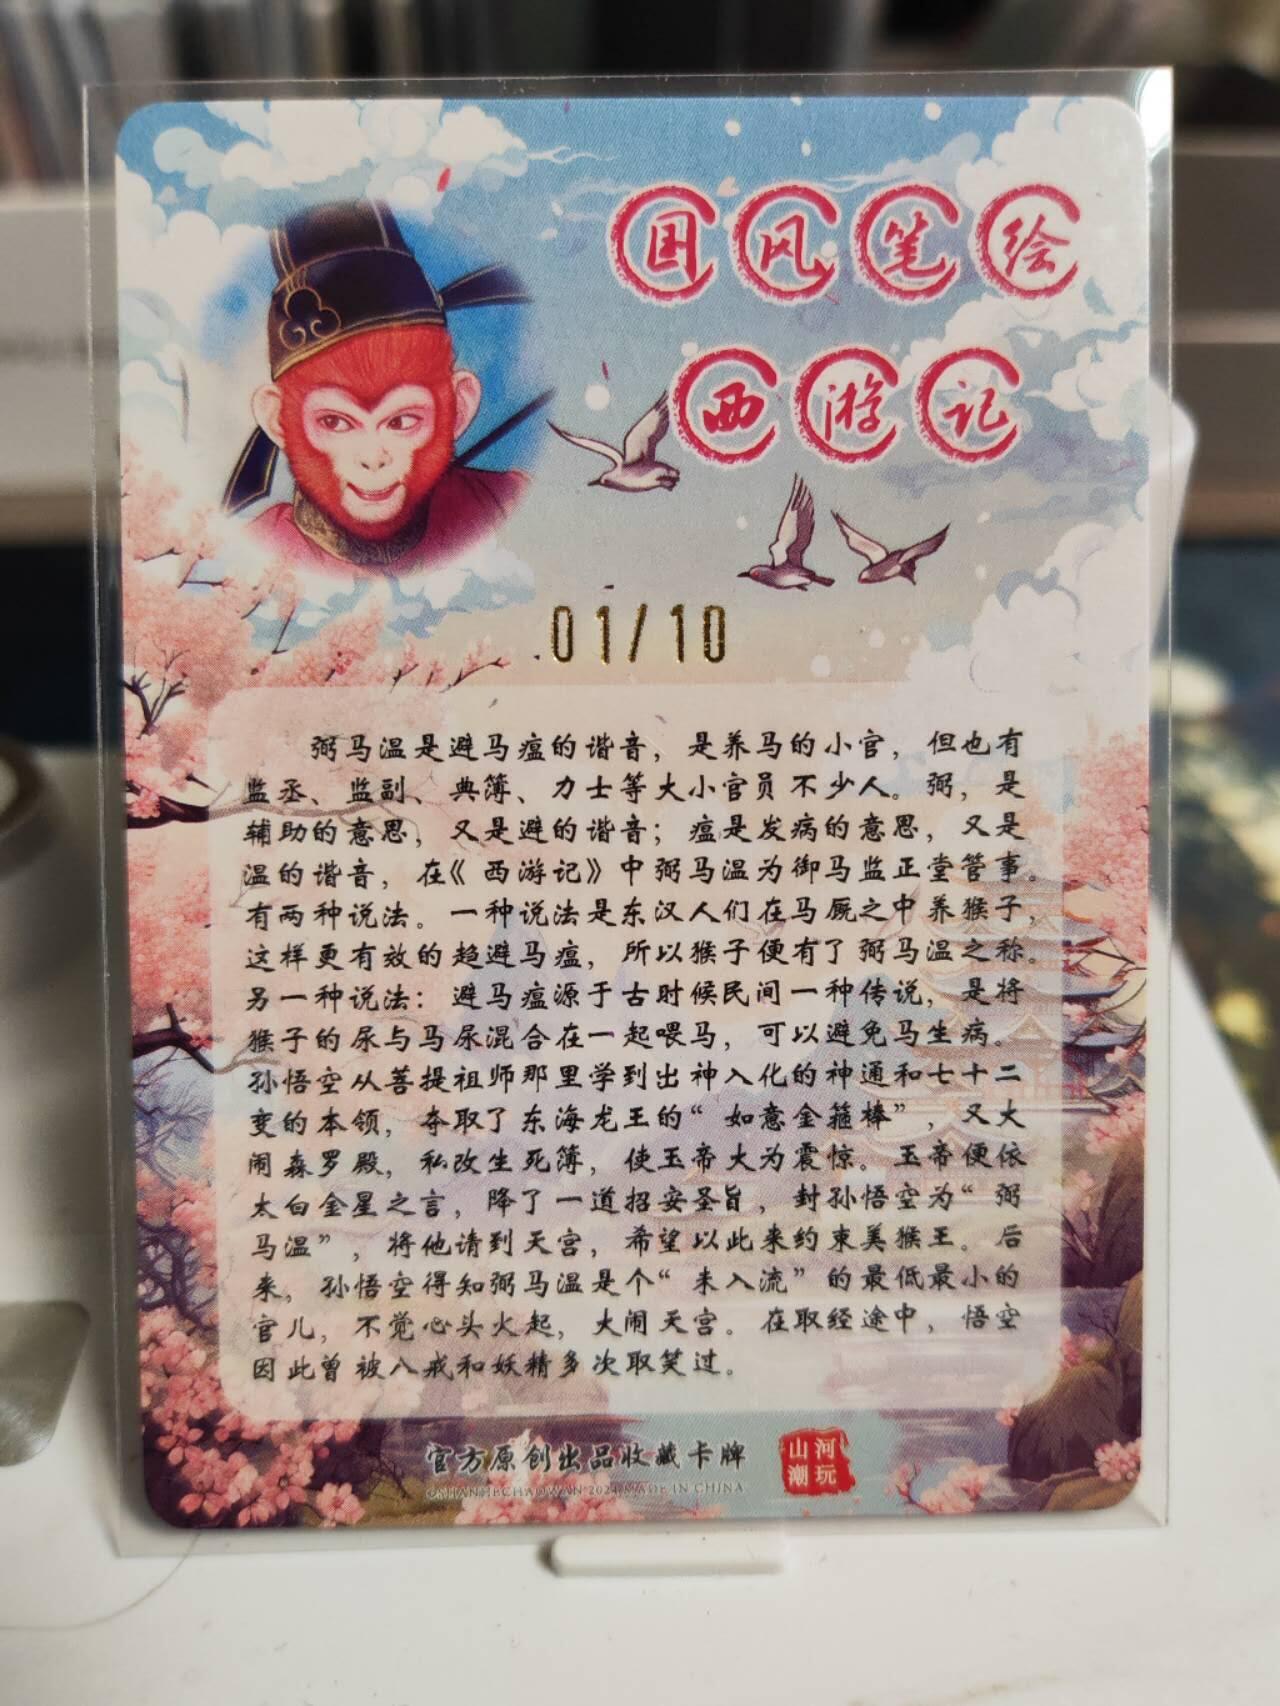 国风笔绘
西游记
01/10
弼马温是避马瘟的谐音，是养马的小官，但也有
监丞、监副、典簿、力士等大小官员不少人。弼，是
辅助的意思，又是避的谐音；瘟是发病的意思，又是
温的谐音，在《西游记》中弼马温为御马监正堂管事。
有两种说法。一种说法是东汉人们在马厩之中养猴子，
这样更有效的趋避马瘟，所以猴子便有了弼马温之称。
另一种说法：避马瘟源于古时候民间一种传说，是将
猴子的尿与马尿混合在一起喂马，可以避免马生病。
孙悟空从菩提祖师那里学到出神入化的神通和七十二
变的本领，夺取了东海龙王的“如意金箍棒”，又大
闹森罗殿，私改生死簿，使玉帝大为震惊。玉帝便依
太白金星之言，降了一道招安圣旨，封孙悟空为“弼
马温”，将他请到天宫，希望以此来约束美猴王。后
来，孙悟空得知弼马温是个“未入流”的最低最小的
官儿，不觉心头火起，大闹天宫。在取经途中，悟空
因此曾被八戒和妖精多次取笑过。
官方原创出品收藏卡牌
©SHANHECHAOWAN 2024 MADE IN CHINA
山河
潮玩